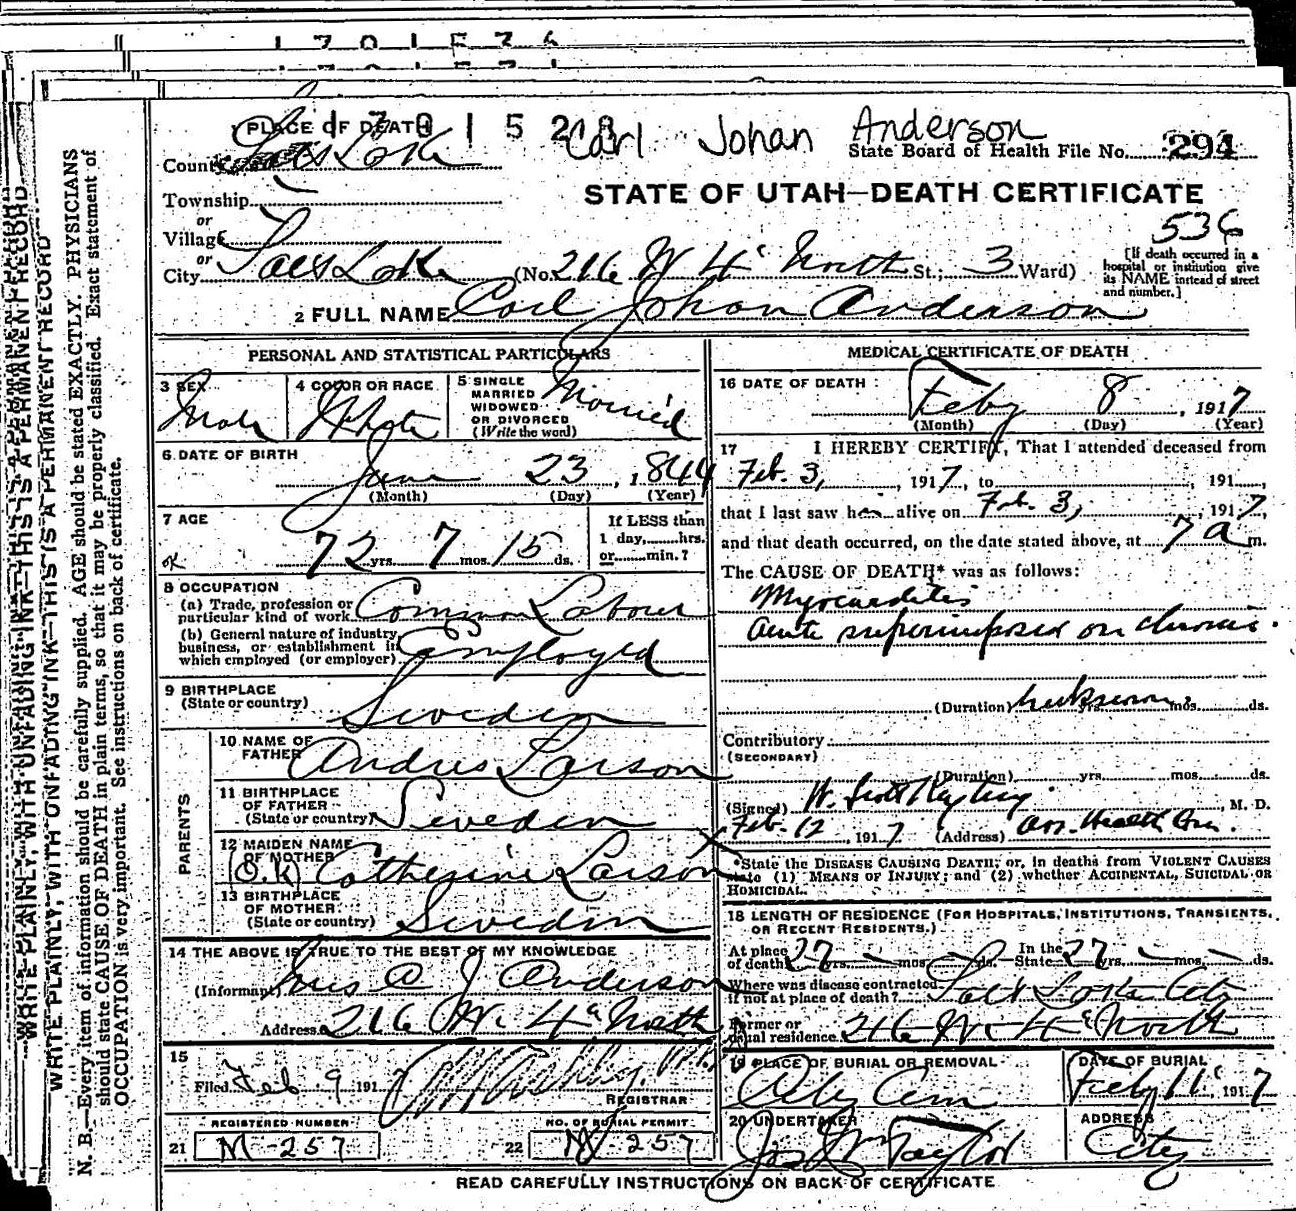 1701536
PLACE OF DEATH 1701528 Carl Johan Anderson
County Salt Lake State Board of Health File No. 294
STATE OF UTAH—DEATH CERTIFICATE
Township
or
Village
536
or
City Salt Lake (No. 216 W 4" North St.; 3 Ward)
[If death occurred in a hospital or institution give its NAME instead of street and number.]
2 FULL NAME Carl Johan Anderson
PERSONAL AND STATISTICAL PARTICULARS
3 SEX Male
4 COLOR OR RACE White
5 SINGLE MARRIED WIDOWED OR DIVORCED (Write the word) Married
6 DATE OF BIRTH June 23, 1844
(Month) (Day) (Year)
7 AGE
ok 72 yrs. 7 mos. 15 ds.
If LESS than 1 day, hrs. or min.?
8 OCCUPATION
(a) Trade, profession or particular kind of work Common Labour
(b) General nature of industry, business, or establishment in which employed (or employer) Employed
9 BIRTHPLACE (State or country) Sweden
PARENTS
10 NAME OF FATHER Andres Larson
11 BIRTHPLACE OF FATHER (State or country) Sweden
12 MAIDEN NAME OF MOTHER (O.K) Catherine Larson X
13 BIRTHPLACE OF MOTHER (State or country) Sweden
14 THE ABOVE IS TRUE TO THE BEST OF MY KNOWLEDGE
(Informant) Mrs A J Anderson
Address 216 W. 4" North
15
Filed Feb 9 1917
REGISTRAR
REGISTERED NUMBER
21 M-257
NO. OF BURIAL PERMIT
22 M 257
MEDICAL CERTIFICATE OF DEATH
16 DATE OF DEATH
Feby 8, 1917
(Month) (Day) (Year)
17 I HEREBY CERTIFY, That I attended deceased from
Feb. 3, 1917, to , 191 ,
that I last saw h alive on Feb. 3, , 1917,
and that death occurred, on the date stated above, at 7 a m.
The CAUSE OF DEATH* was as follows:
Myocarditis
acute superimposed on chronic.
(Duration) unknown yrs. mos. ds.
Contributory
(SECONDARY)
(Duration) yrs. mos. ds.
(Signed) W. Scott , M. D.
Feb. 12, 1917 (Address) Health
*State the DISEASE CAUSING DEATH; or, in deaths from VIOLENT CAUSES
state (1) MEANS OF INJURY; and (2) whether ACCIDENTAL, SUICIDAL OR
HOMICIDAL.
18 LENGTH OF RESIDENCE (FOR HOSPITALS, INSTITUTIONS, TRANSIENTS, OR RECENT RESIDENTS.)
At place of death 27 yrs. — mos. — ds. In the State 27 yrs. — mos. — ds.
Where was disease contracted if not at place of death? Salt Lake City
Former or usual residence 216 W. 4" North
19 PLACE OF BURIAL OR REMOVAL City Cem
DATE OF BURIAL Feby 11", 1917
20 UNDERTAKER Jos Wm Taylor
ADDRESS City
READ CAREFULLY INSTRUCTIONS ON BACK OF CERTIFICATE
WRITE PLAINLY, WITH UNFADING INK—THIS IS A PERMANENT RECORD
WRITE PLAINLY, WITH UNFADING INK—THIS IS A PERMANENT RECORD
N. B.—Every item of information should be carefully supplied. AGE should be stated EXACTLY. PHYSICIANS
should state CAUSE OF DEATH in plain terms, so that it may be properly classified. Exact statement of
OCCUPATION is very important. See instructions on back of certificate.